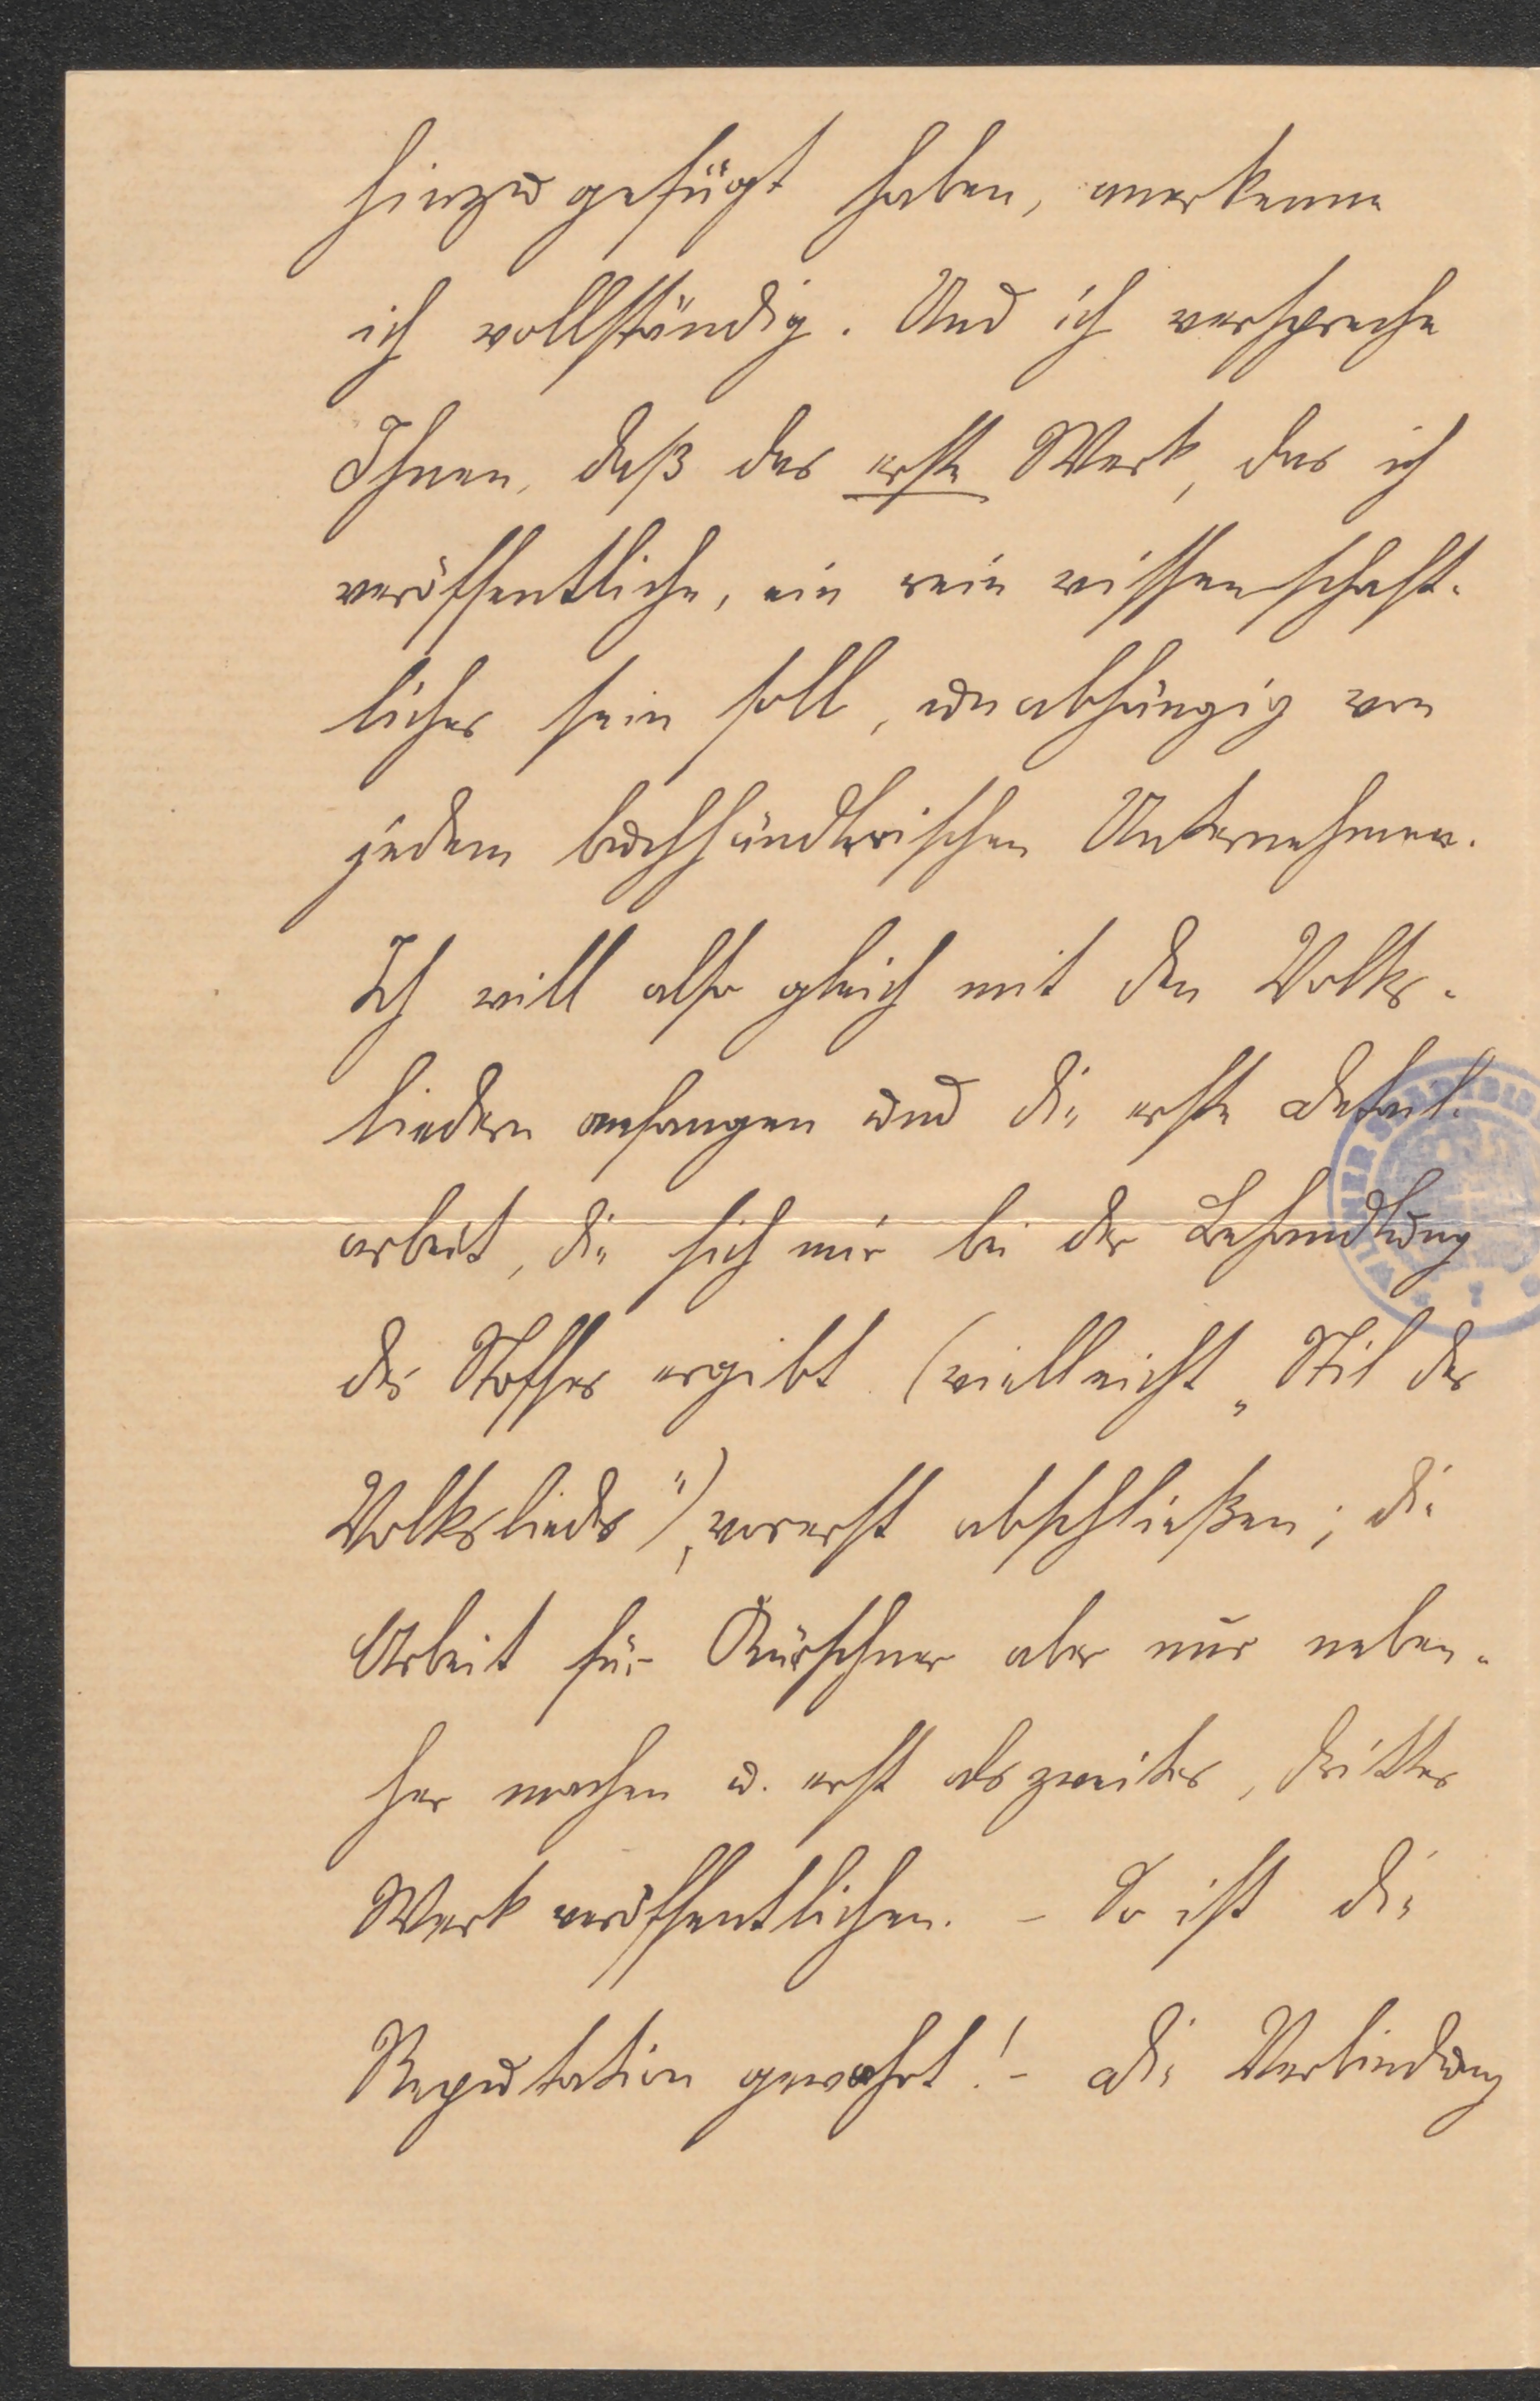 hinzugefügt haben, anerkenne
ich vollständig. Und ich verspreche
Ihnen, daß das erste Werk, das ich
veröffentliche, ein rein wissenschaft-
liches sein soll, unabhängig von
jedem buchhändlerischen Unternehmen.
Ich will also gleich mit den Volks-
liedern anfangen und die erste Detail-
arbeit, die sich mir bei der Behandlung
des Stoffes ergibt (vielleicht „Stil des
Volkslieds"), vorerst abschließen; die
Arbeit für Kürschner aber nur neben-
her machen u. erst als zweites, drittes
Werk veröffentlichen. – So ist die
Reputation gewahrt! – Die Verbindung